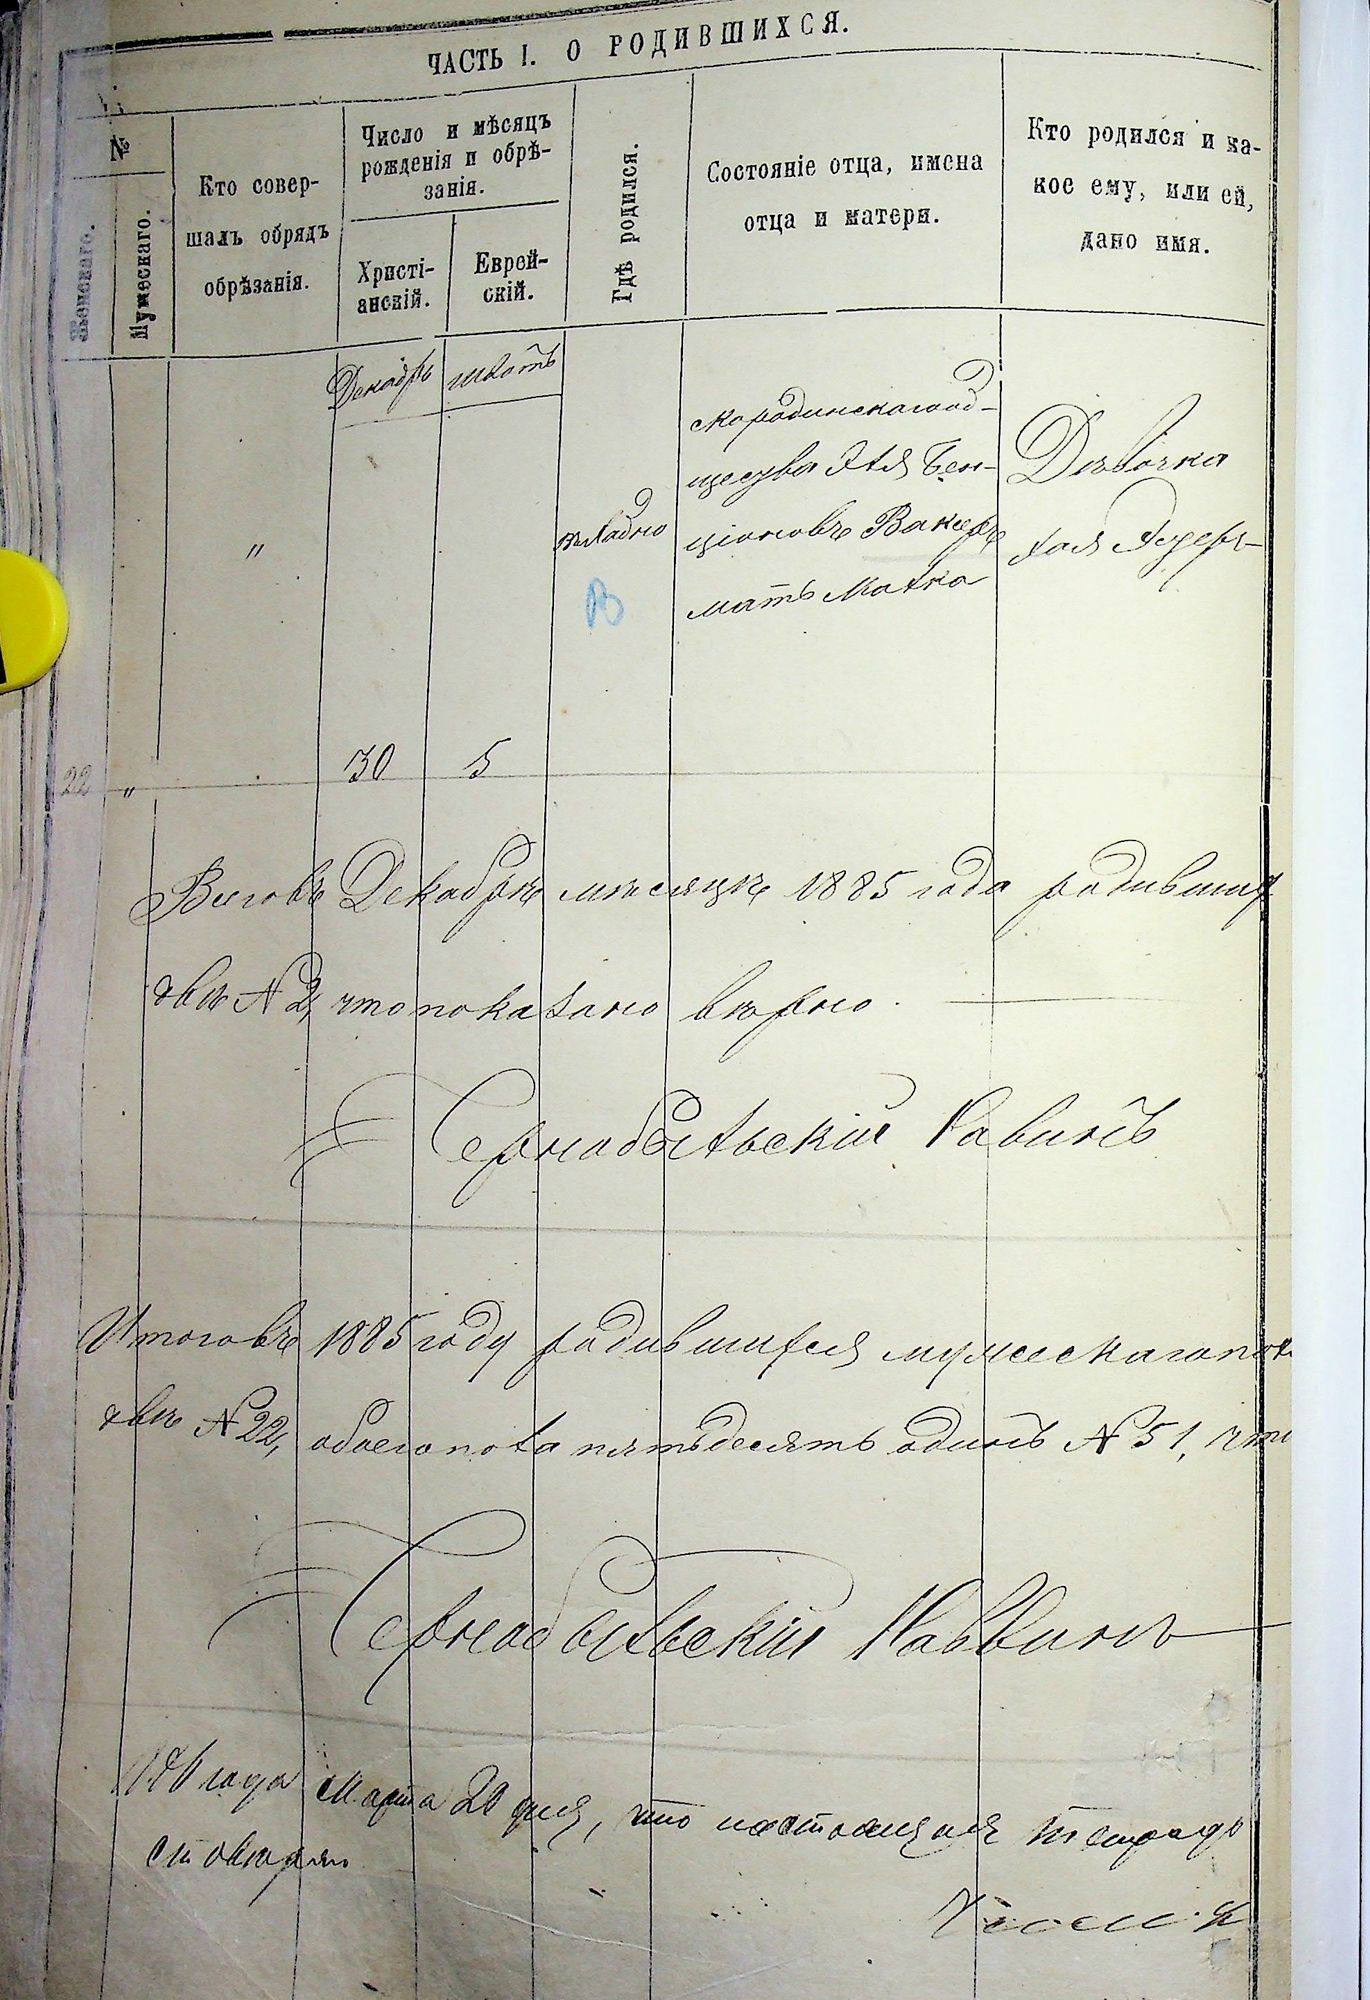 ЧАСТЬ I. О РОДИВШИХСЯ.
№
Женскаго.
Мужескаго.
Кто совер-
шалъ обрядъ
обрѣзанія.
Число и мѣсяцъ
рожденія и обрѣ-
занія.
Христі-
анскій.
Еврей-
скій.
Гдѣ родился.
Состояніе отца, имена
отца и матери.
Кто родился и ка-
кое ему, или ей,
дано имя.
22
"
"
Декабрь
30
шватъ
5
общества
ціоновъ Вакеръ
мать Малка
Дѣвочка
Хая Эстеръ
Всего въ Декабрѣ мѣсяцѣ 1885 года
двѣ № 2, что показано вѣрно.
Чернобыльскій Равинъ
Итого въ 1885 году родившихся мужескаго
двѣ № 22, обоего пола пятьдесятъ одинъ № 51, что
Чернобыльскій Раввинъ
года Марта 20 дня, что настоящая тетрадь